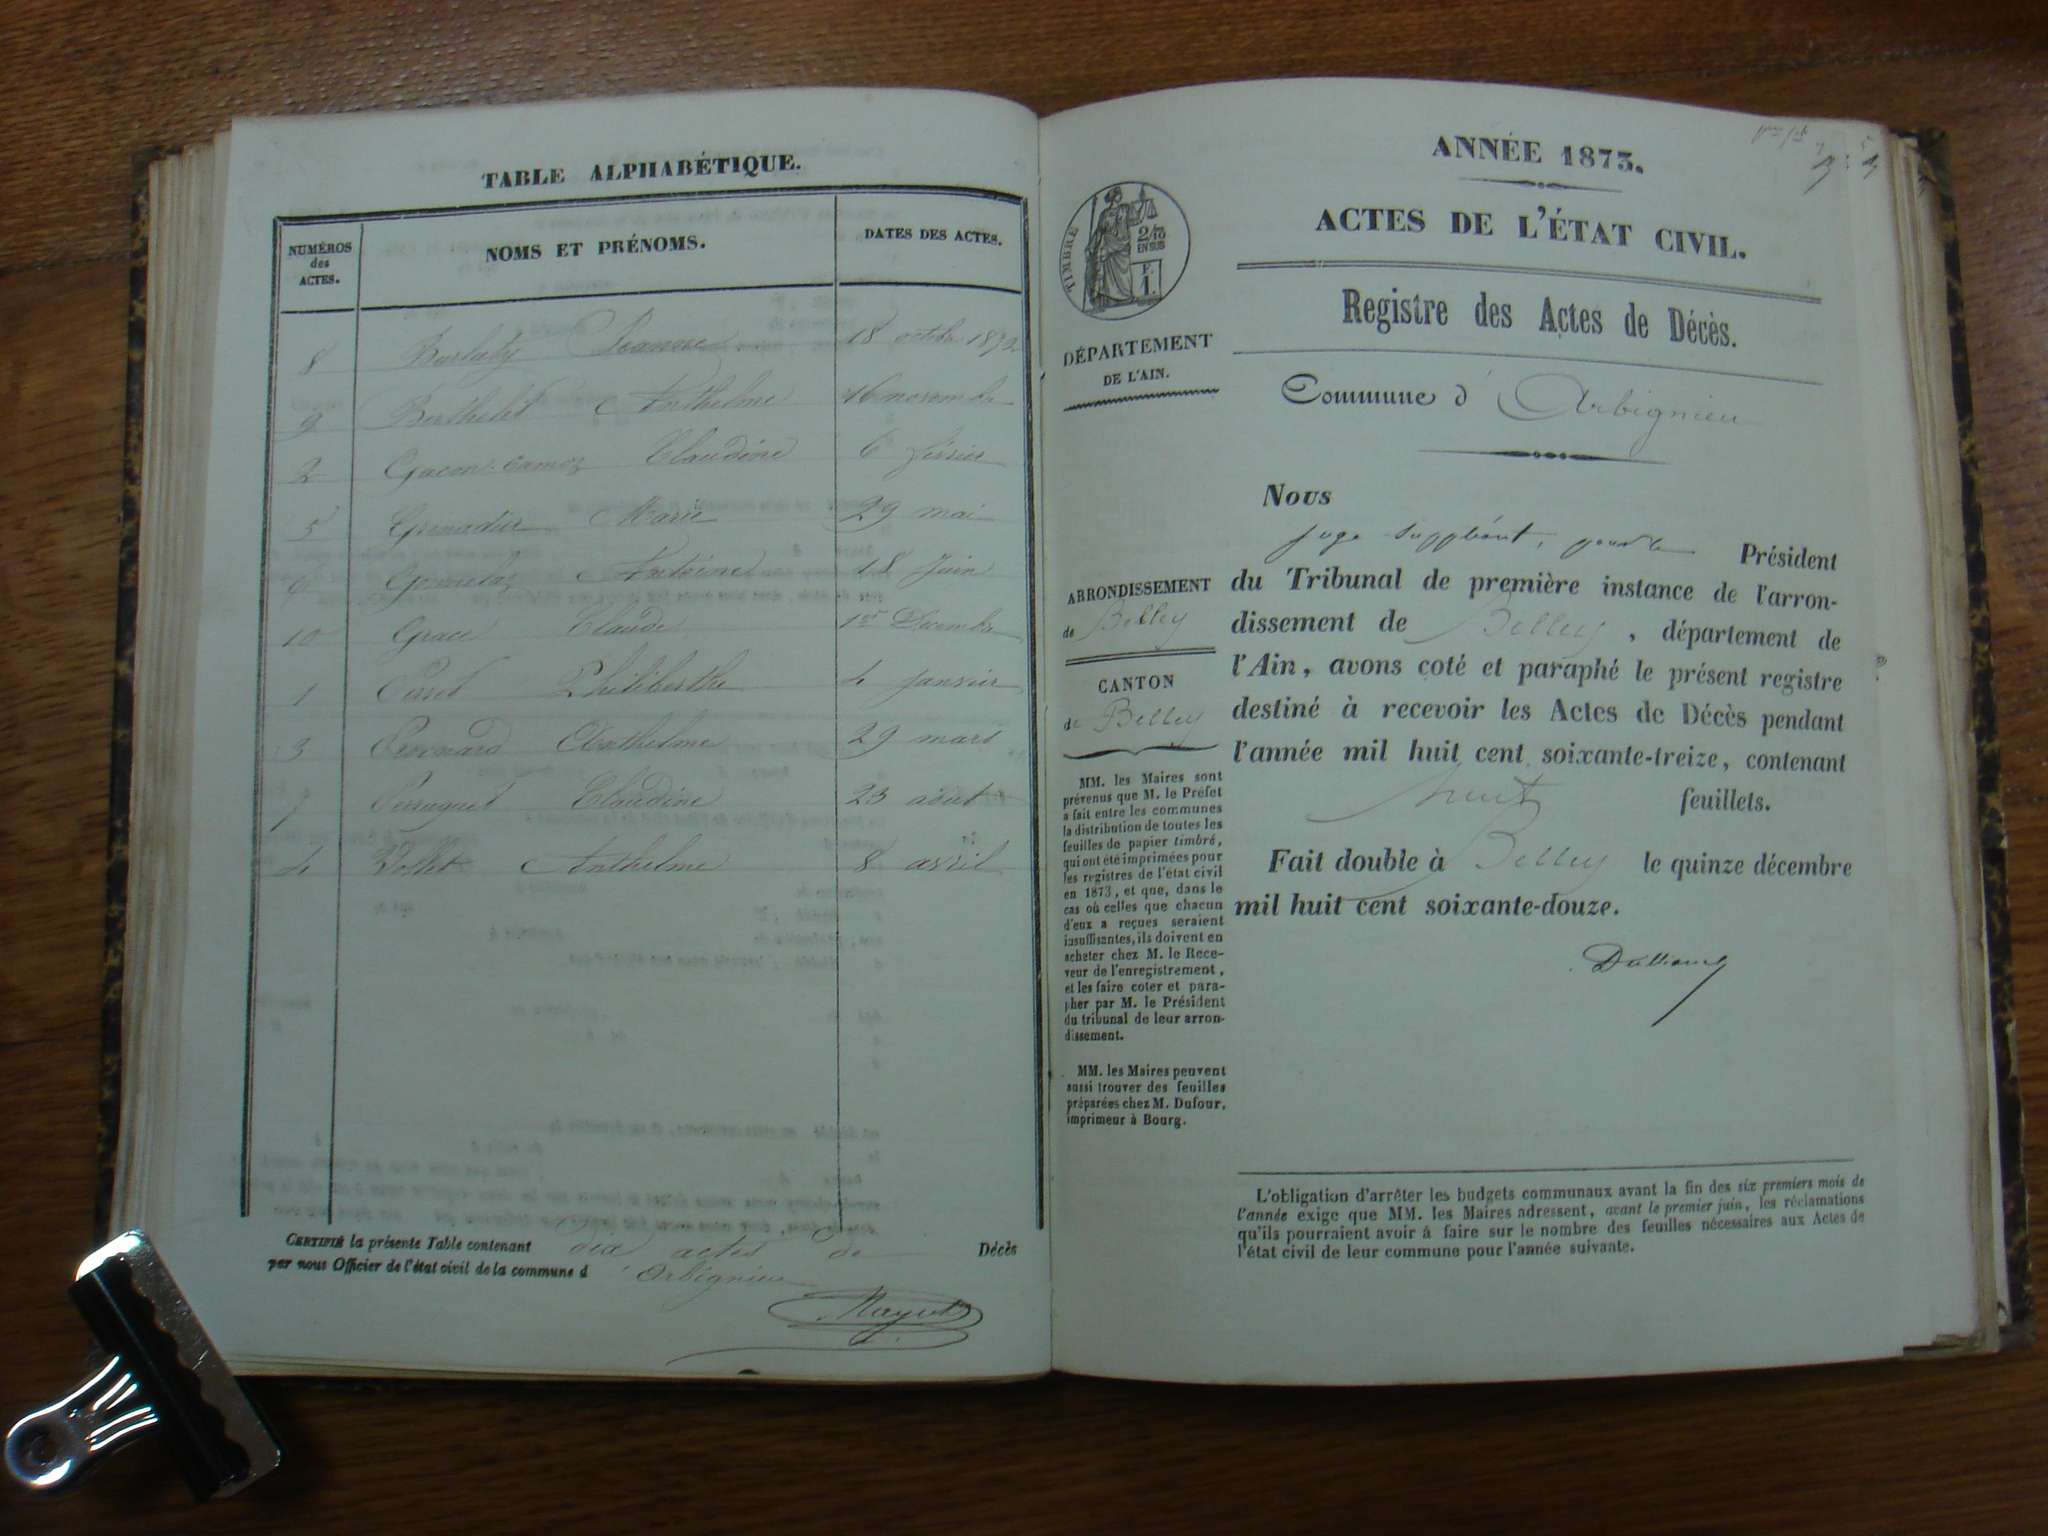 TABLE ALPHABÉTIQUE.
NUMÉROS
des
ACTES.
NOMS ET PRÉNOMS.
DATES DES ACTES.
8 Burlaty Jeanne 18 octobre 1872
9 Berthelet Anthelme 16 novembre
2 Gacon-Camoz Claudine 6 février
5 Grenadier Marie 29 mai
6 Antoine 18 Juin
10 Grace Claude 1er Décembre
1 Philiberthe 4 Janvier
3 Anthelme 29 mars
7 Perruquet Claudine 23 août
4 Anthelme 8 avril
CERTIFIÉ la présente Table contenant dix actes de Décès
par nous Officier de l'état civil de la commune d'Arbignieu
ANNÉE 1873.
ACTES DE L'ÉTAT CIVIL.
Registre des Actes de Décès.
Commune d'Arbignieu
TIMBRE
2/10
EN SUS
F.
1.
DÉPARTEMENT
DE L'AIN.
ARRONDISSEMENT
de Belley
CANTON
de Belley
MM. les Maires sont
prévenus que M. le Préfet
a fait entre les communes
la distribution de toutes les
feuilles de papier timbré,
qui ont été imprimées pour
les registres de l'état civil
en 1873, et que, dans le
cas où celles que chacun
d'eux a reçues seraient
insuffisantes, ils doivent en
acheter chez M. le Rece-
veur de l'enregistrement,
et les faire coter et para-
pher par M. le Président
du tribunal de leur arron-
dissement.
MM. les Maires peuvent
aussi trouver des feuilles
préparées chez M. Dufour,
imprimeur à Bourg.
Nous
juge suppléant, pour le Président
du Tribunal de première instance de l'arron-
dissement de Belley, département de
l'Ain, avons coté et paraphé le présent registre
destiné à recevoir les Actes de Décès pendant
l'année mil huit cent soixante-treize, contenant
huit feuillets.
Fait double à Belley le quinze décembre
mil huit cent soixante-douze.
L'obligation d'arrêter les budgets communaux avant la fin des six premiers mois de
l'année exige que MM. les Maires adressent, avant le premier juin, les réclamations
qu'ils pourraient avoir à faire sur le nombre des feuilles nécessaires aux Actes de
l'état civil de leur commune pour l'année suivante.